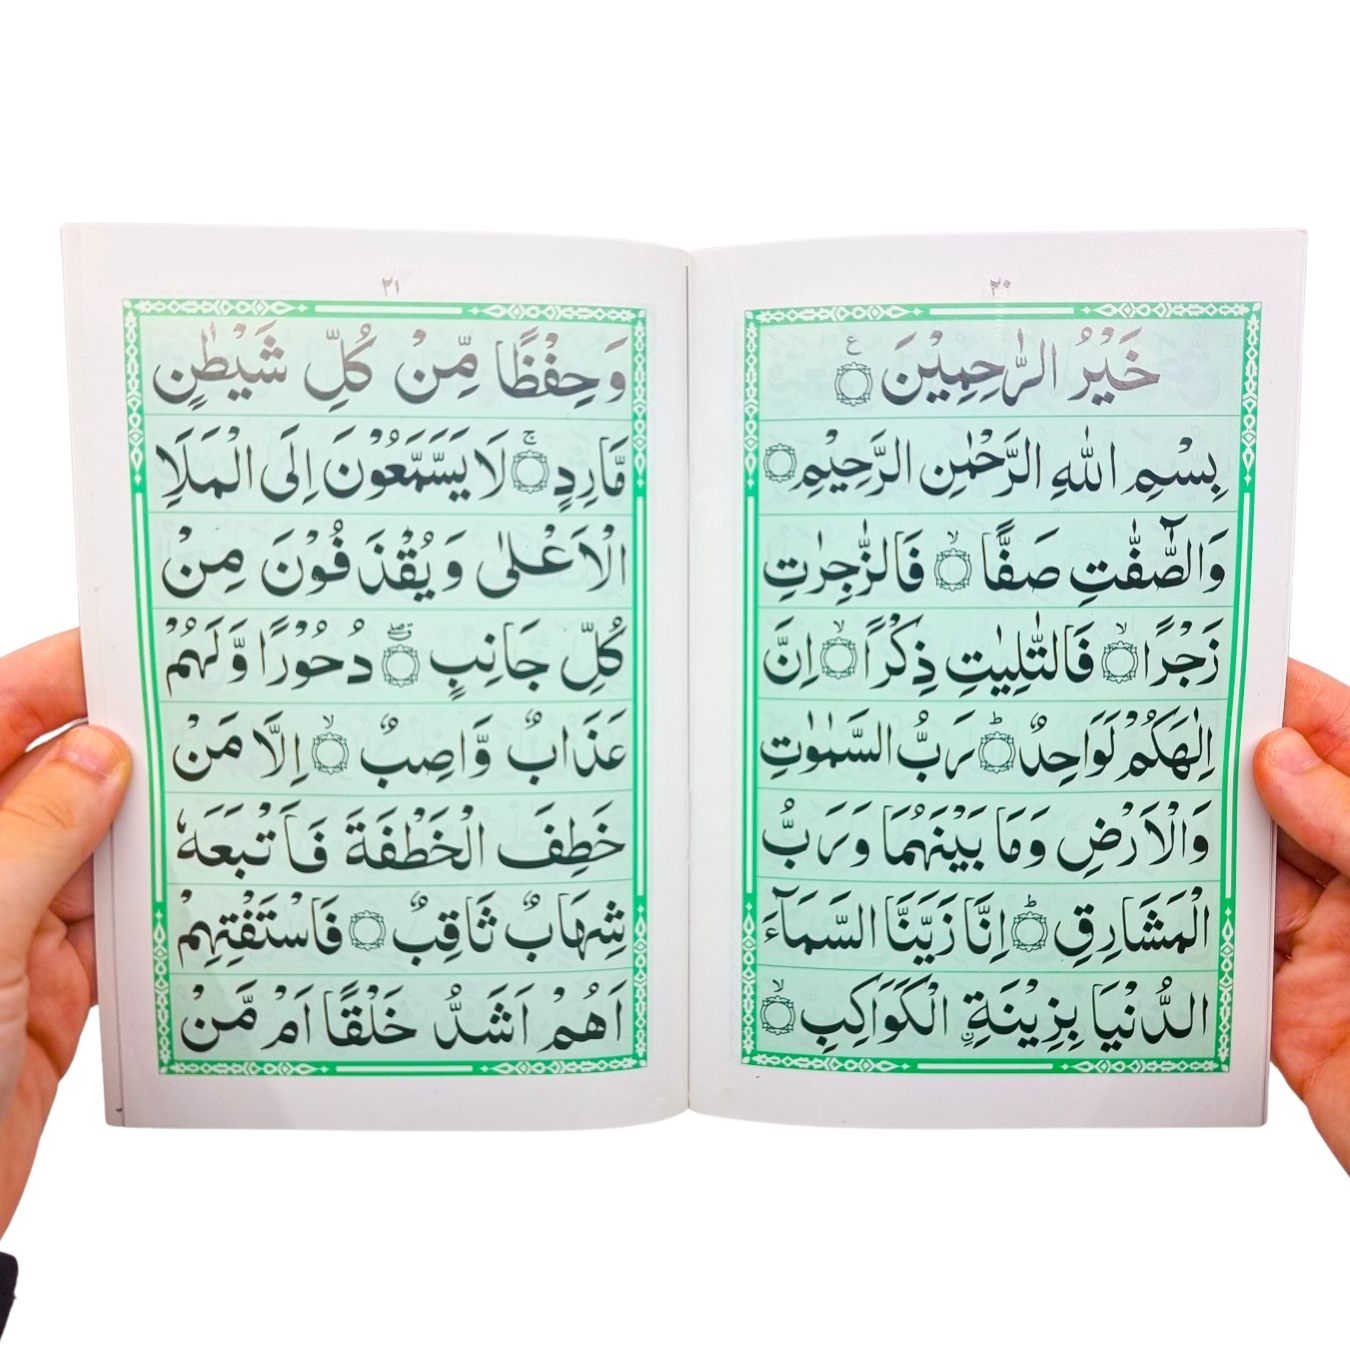 ٢٠
خَيْرُ الرّٰحِمِيْنَ ۝ ع
بِسْمِ اللّٰهِ الرَّحْمٰنِ الرَّحِيْمِ ۝
وَالصّٰٓفّٰتِ صَفًّا ۝ۙ فَالزّٰجِرٰتِ
زَجْرًا ۝ۙ فَالتّٰلِيٰتِ ذِكْرًا ۝ۙ اِنَّ
اِلٰهَكُمْ لَوَاحِدٌ ۝ؕ رَبُّ السَّمٰوٰتِ
وَالْاَرْضِ وَمَا بَيْنَهُمَا وَرَبُّ
الْمَشَارِقِ ۝ؕ اِنَّا زَيَّنَّا السَّمَآءَ
الدُّنْيَا بِزِيْنَةِ ۨ الْكَوَاكِبِ ۝ۙ
٢١
وَحِفْظًا مِّنْ كُلِّ شَيْطٰنٍ
مَّارِدٍ ۝ۚ لَا يَسَّمَّعُوْنَ اِلَى الْمَلَاِ
الْاَعْلٰى وَيُقْذَفُوْنَ مِنْ
كُلِّ جَانِبٍ ۝ۖق دُحُوْرًا وَّلَهُمْ
عَذَابٌ وَّاصِبٌ ۝ۙ اِلَّا مَنْ
خَطِفَ الْخَطْفَةَ فَاَتْبَعَهٗ
شِهَابٌ ثَاقِبٌ ۝ فَاسْتَفْتِهِمْ
اَهُمْ اَشَدُّ خَلْقًا اَمْ مَّنْ